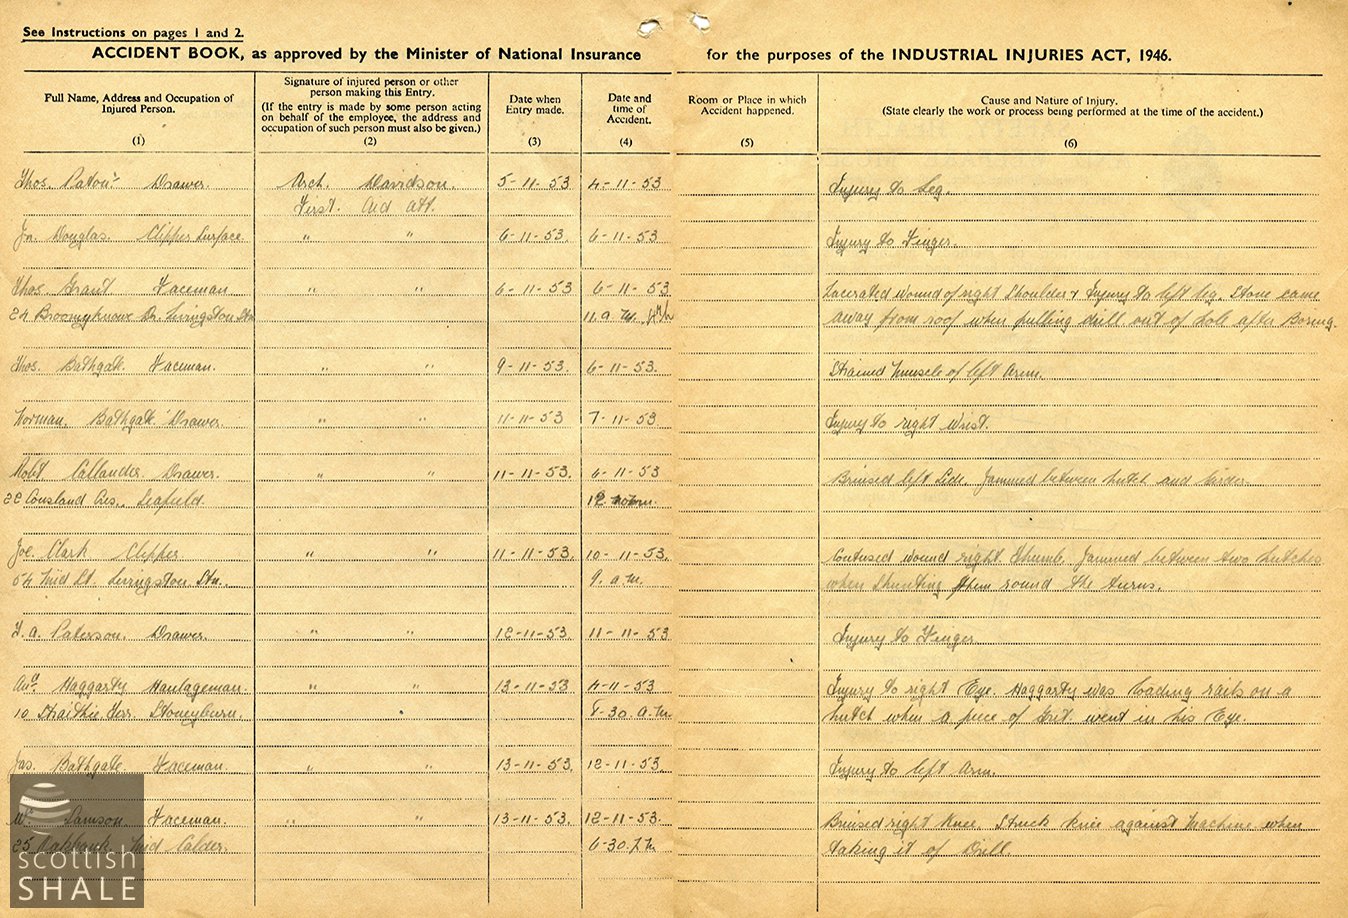 See Instructions on pages 1 and 2.
ACCIDENT BOOK, as approved by the Minister of National Insurance for the purposes of the INDUSTRIAL INJURIES ACT, 1946.
Full Name, Address and Occupation of
Injured Person.
(1)
Signature of injured person or other
person making this Entry.
(If the entry is made by some person acting
on behalf of the employee, the address and
occupation of such person must also be given.)
(2)
Date when
Entry made.
(3)
Date and
time of
Accident.
(4)
Room or Place in which
Accident happened.
(5)
Cause and Nature of Injury.
(State clearly the work or process being performed at the time of the accident.)
(6)
Thos. Paton Drawer. Arch. Davidson. 5-11-53 4-11-53 Injury to Leg.
First Aid Att.
Jn. Douglas Clipper Surface. " " 6-11-53. 6-11-53 Injury to Finger.
Thos. Grant Faceman " " 6-11-53 6-11-53 Lacerated wound of right Shoulder + Injury to left leg. Stone came
24 Broomyknowe Dr. Livingston Stn 11 a.m. away from roof when pulling drill out of hole after Boring.
Thos. Bathgate Faceman. " " 9-11-53 6-11-53. Strained muscle of left Arm.
Norman. Bathgate Drawer. " " 11-11-53 7-11-53. Injury to right Wrist.
Robt Callander. Drawer. " " 11-11-53. 6-11-53 Bruised left Side. Jammed between hutch and Girder.
22 Cousland Cres., Seafield. 12
Joe. Clark Clipper " " 11-11-53. 10-11-53. Contused wound right Thumb. Jammed between two hutches
54 Mid St. Livingston Stn. 9. a.m. when Shunting them round the turns.
Paterson. Drawer. " " 12-11-53. 11-11-53 Injury to Finger
And. Haggarty Haulageman. " " 13-11-53 4-11-53 Injury to right Eye. Haggarty was loading rails on a
10 Terr. Stoneyburn. 8-30 a.m hutch when a piece of Grit went in his Eye.
Jas. Bathgate. Faceman. " " 13-11-53. 12-11-53. Injury to left Arm.
Wm. Samson Faceman. " " 13-11-53. 12-11-53. Bruised right Knee. Struck Knee against Machine when
25 Oakbank Mid Calder. 6-30. taking it of Drill.
scottish
SHALE